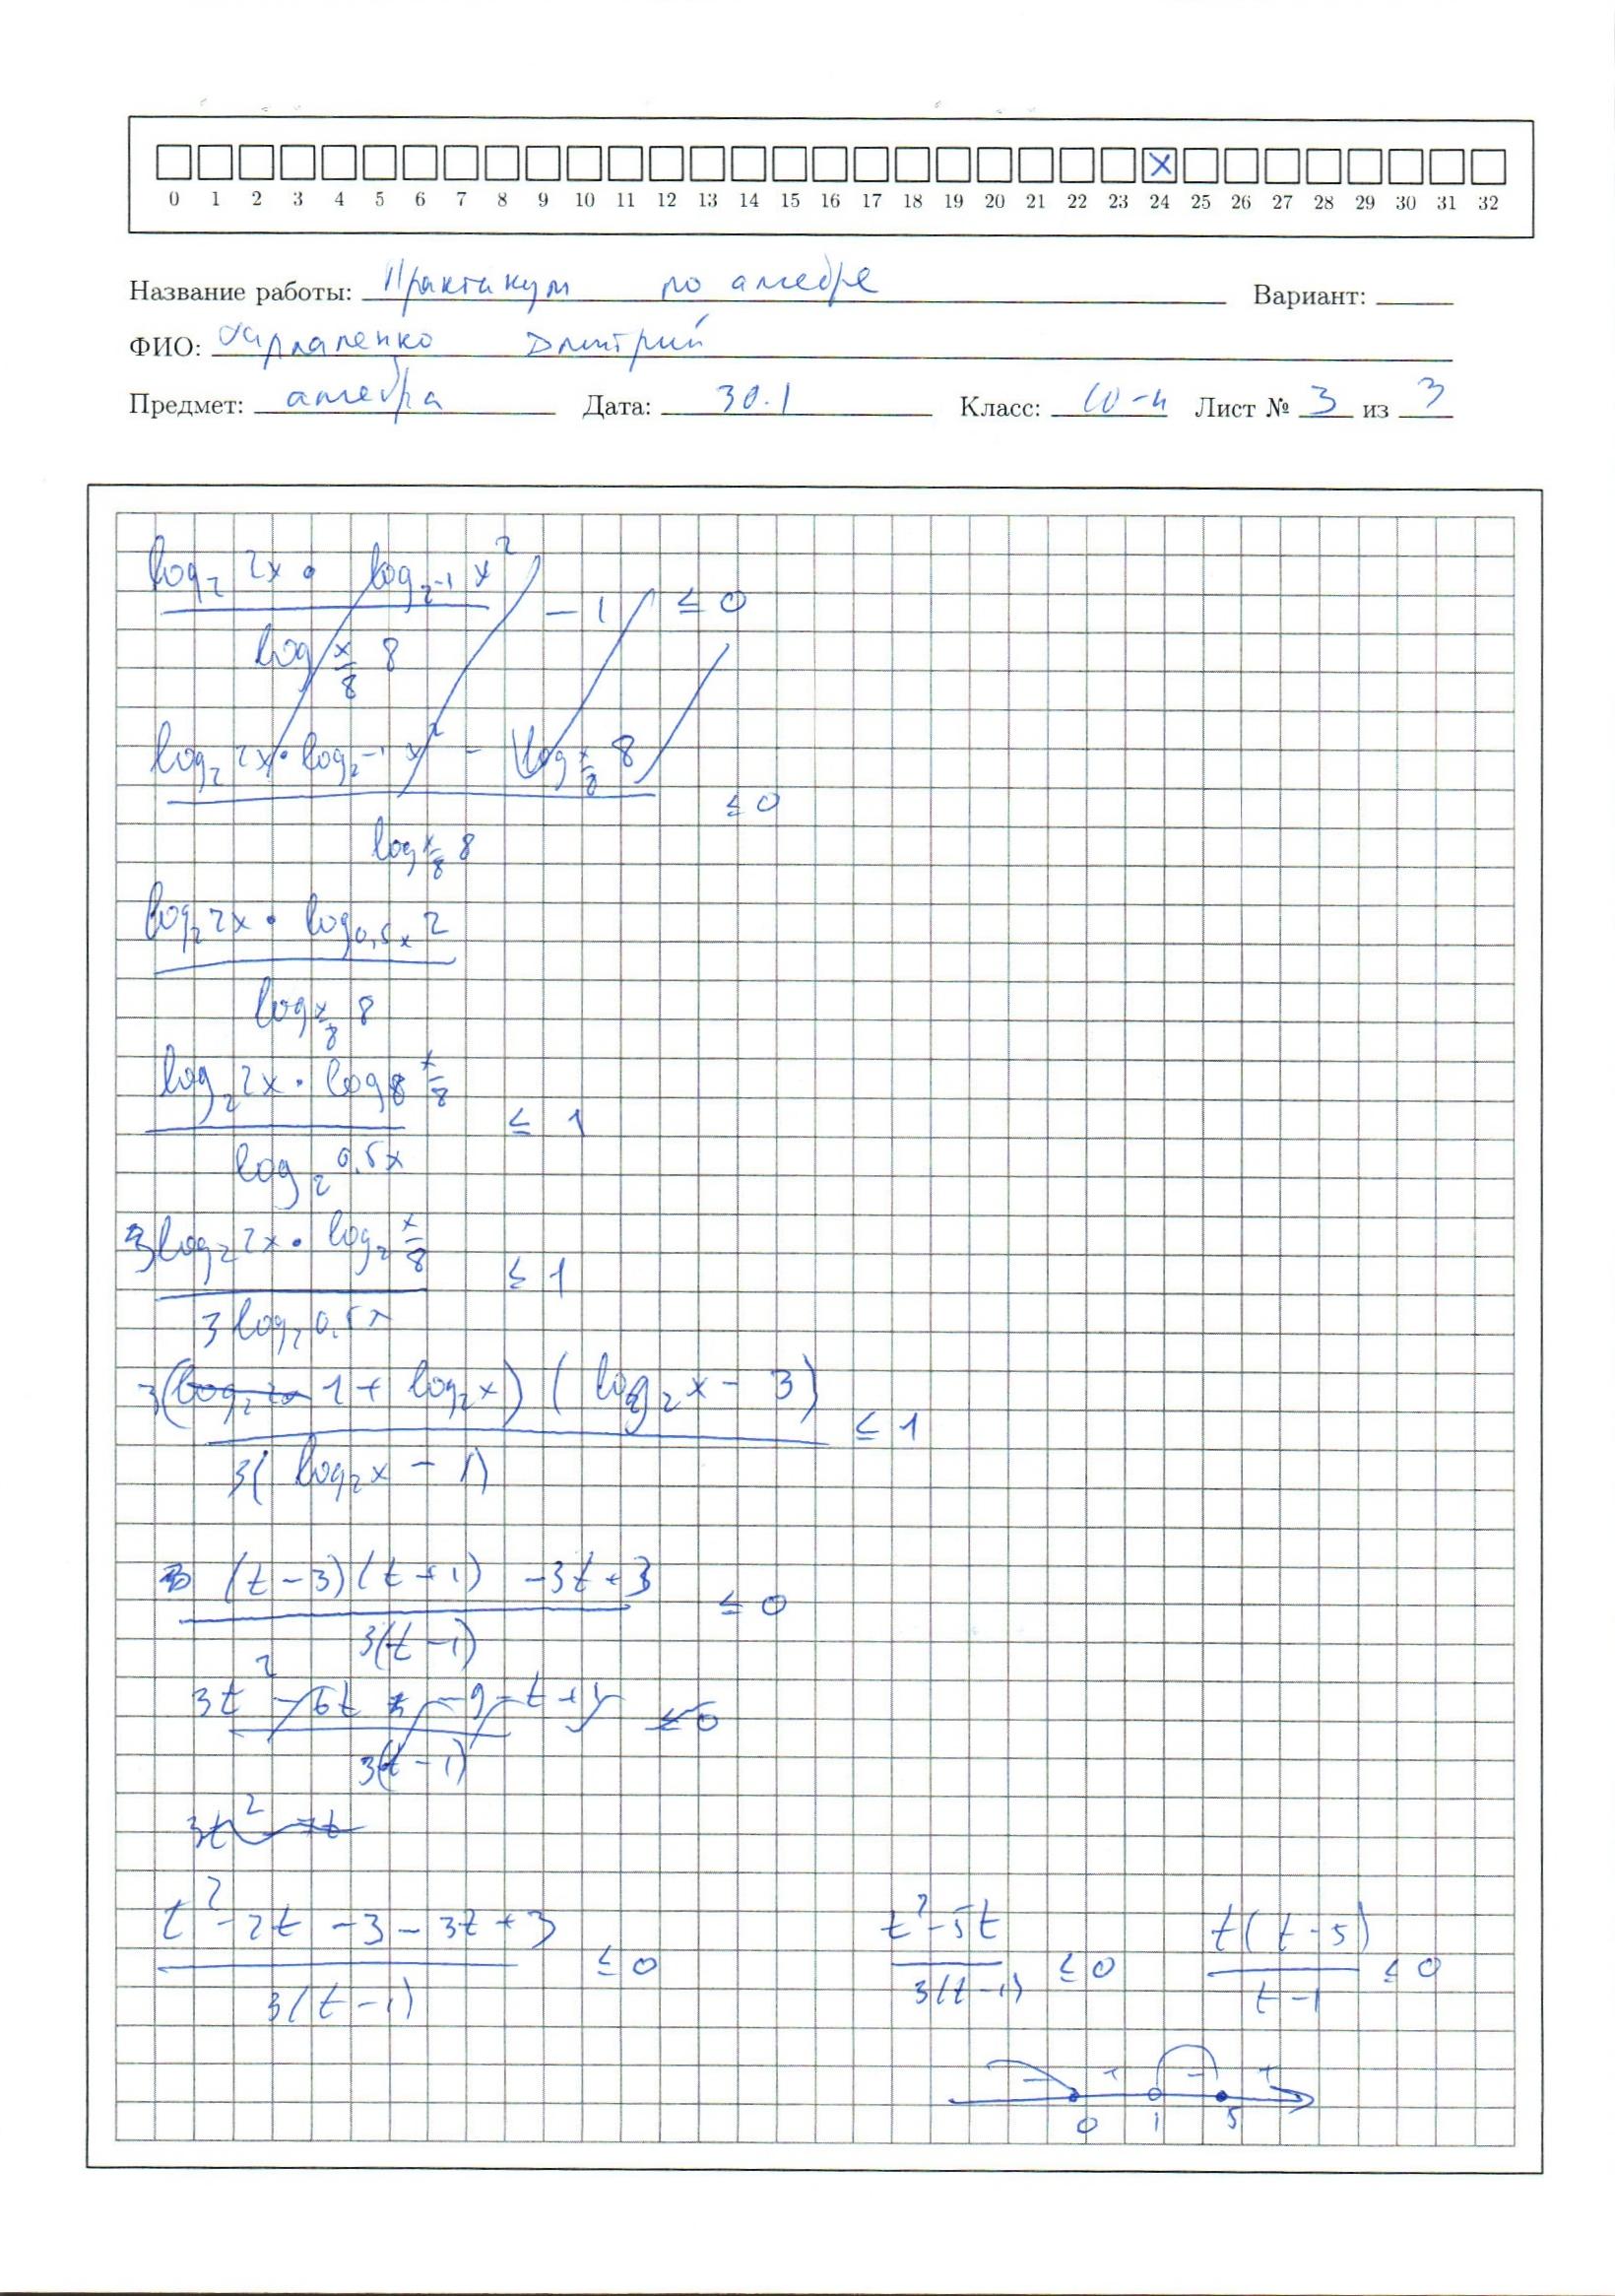 0 1 2 3 4 5 6 7 8 9 10 11 12 13 14 15 16 17 18 19 20 21 22 23 24 25 26 27 28 29 30 31 32
Название работы: Практикум по алебре Вариант:
ФИО: Дмитрий
Предмет: алгебра Дата: 30.1 Класс: 10-4 Лист № 3 из 3
log₂ 2x · log₂₋₁ x² / log_(x/8) 8 − 1 ≤ 0
log₂ 2x · log₂₋₁ x² − log_(x/8) 8 / log_(x/8) 8 ≤ 0
log₂ 2x · log_(0,5x) 2 / log_(x/8) 8
log₂ 2x · log₈ x/8 / log₂ 0.5x ≤ 1
3log₂ 2x · log₂ x/8 / 3 log₂ 0.5x ≤ 1
3(1 + log₂x)(log₂x − 3) / 3(log₂x − 1) ≤ 1
(t − 3)(t + 1) − 3t + 3 / 3(t − 1) ≤ 0
3t² − 6t − 9 − t + 1 / 3(t − 1) ≤ 0
3t² − 7t
t² − 2t − 3 − 3t + 3 / 3(t − 1) ≤ 0 t² − 5t / 3(t − 1) ≤ 0 t(t − 5) / t − 1 ≤ 0
− + − +
0 1 5